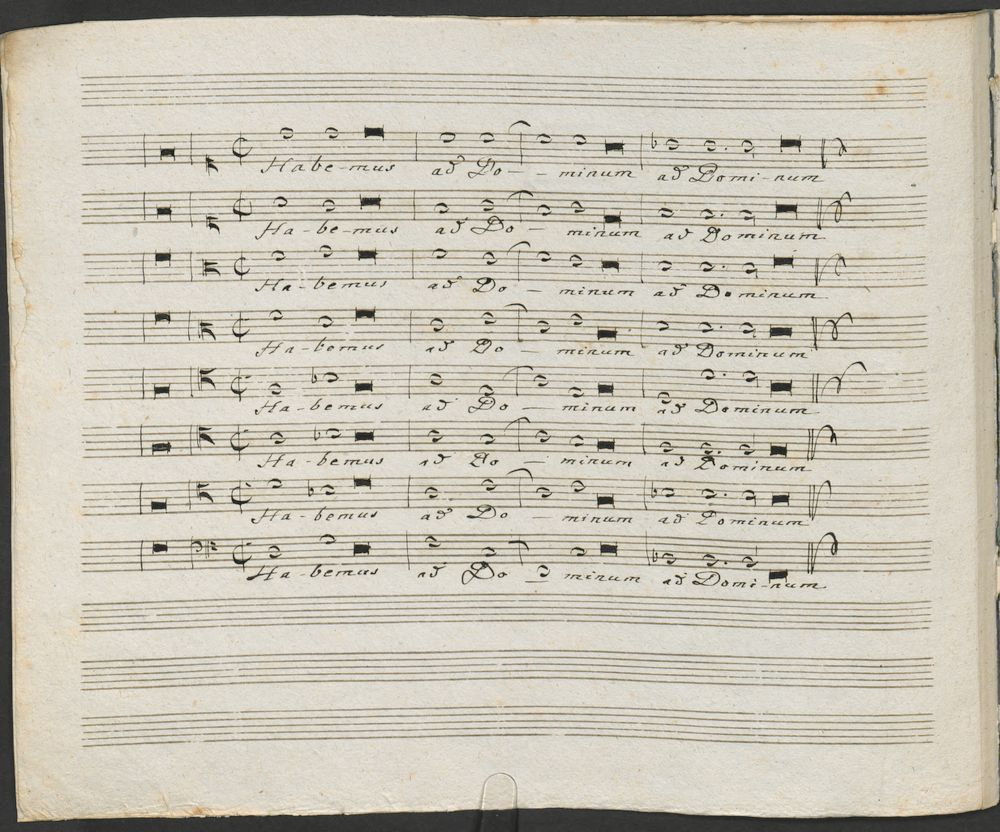 Habe-mus ad Do- - minum ad Domi-num
Ha-be-mus ad Do - minum ad Dominum
Ha-bemus ad Do - minum ad Dominum
Ha-bemus ad Do - minum ad Dominum
Ha-bemus ad Do - minum ad Dominum
Ha-bemus ad Do - minum ad Dominum
Ha-bemus ad Do - minum ad Dominum
Ha-bemus ad Do - minum ad Domi-num